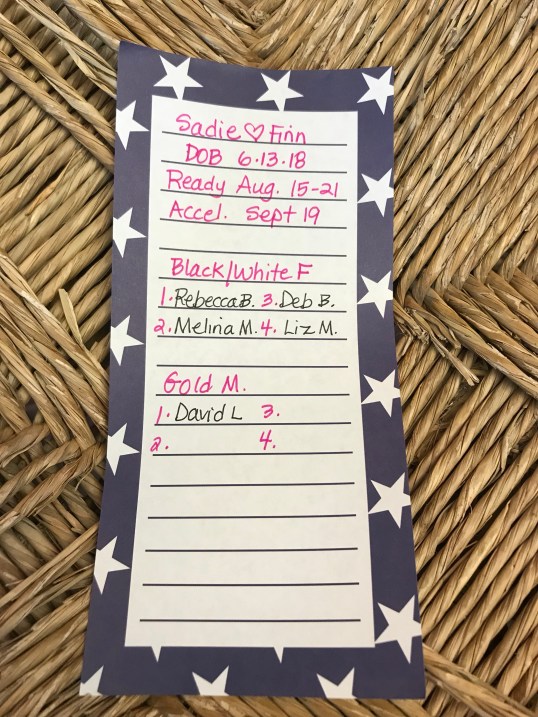 Sadie ♡ Finn
DOB 6.13.18
Ready Aug. 15-21
Accel. Sept 19
Black/White F
1. Rebecca B. 3. Deb B.
2. Melina M. 4. Liz M.
Gold M.
1. David L 3.
2. 4.